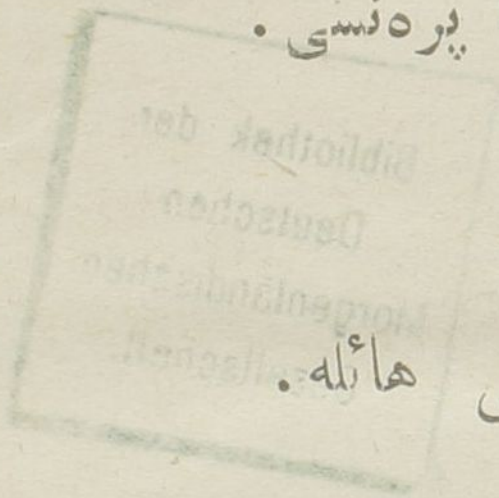 پره نسی .
Bibliothek der
Deutschen
Morgenländischen
Gesellschaft
هائله .